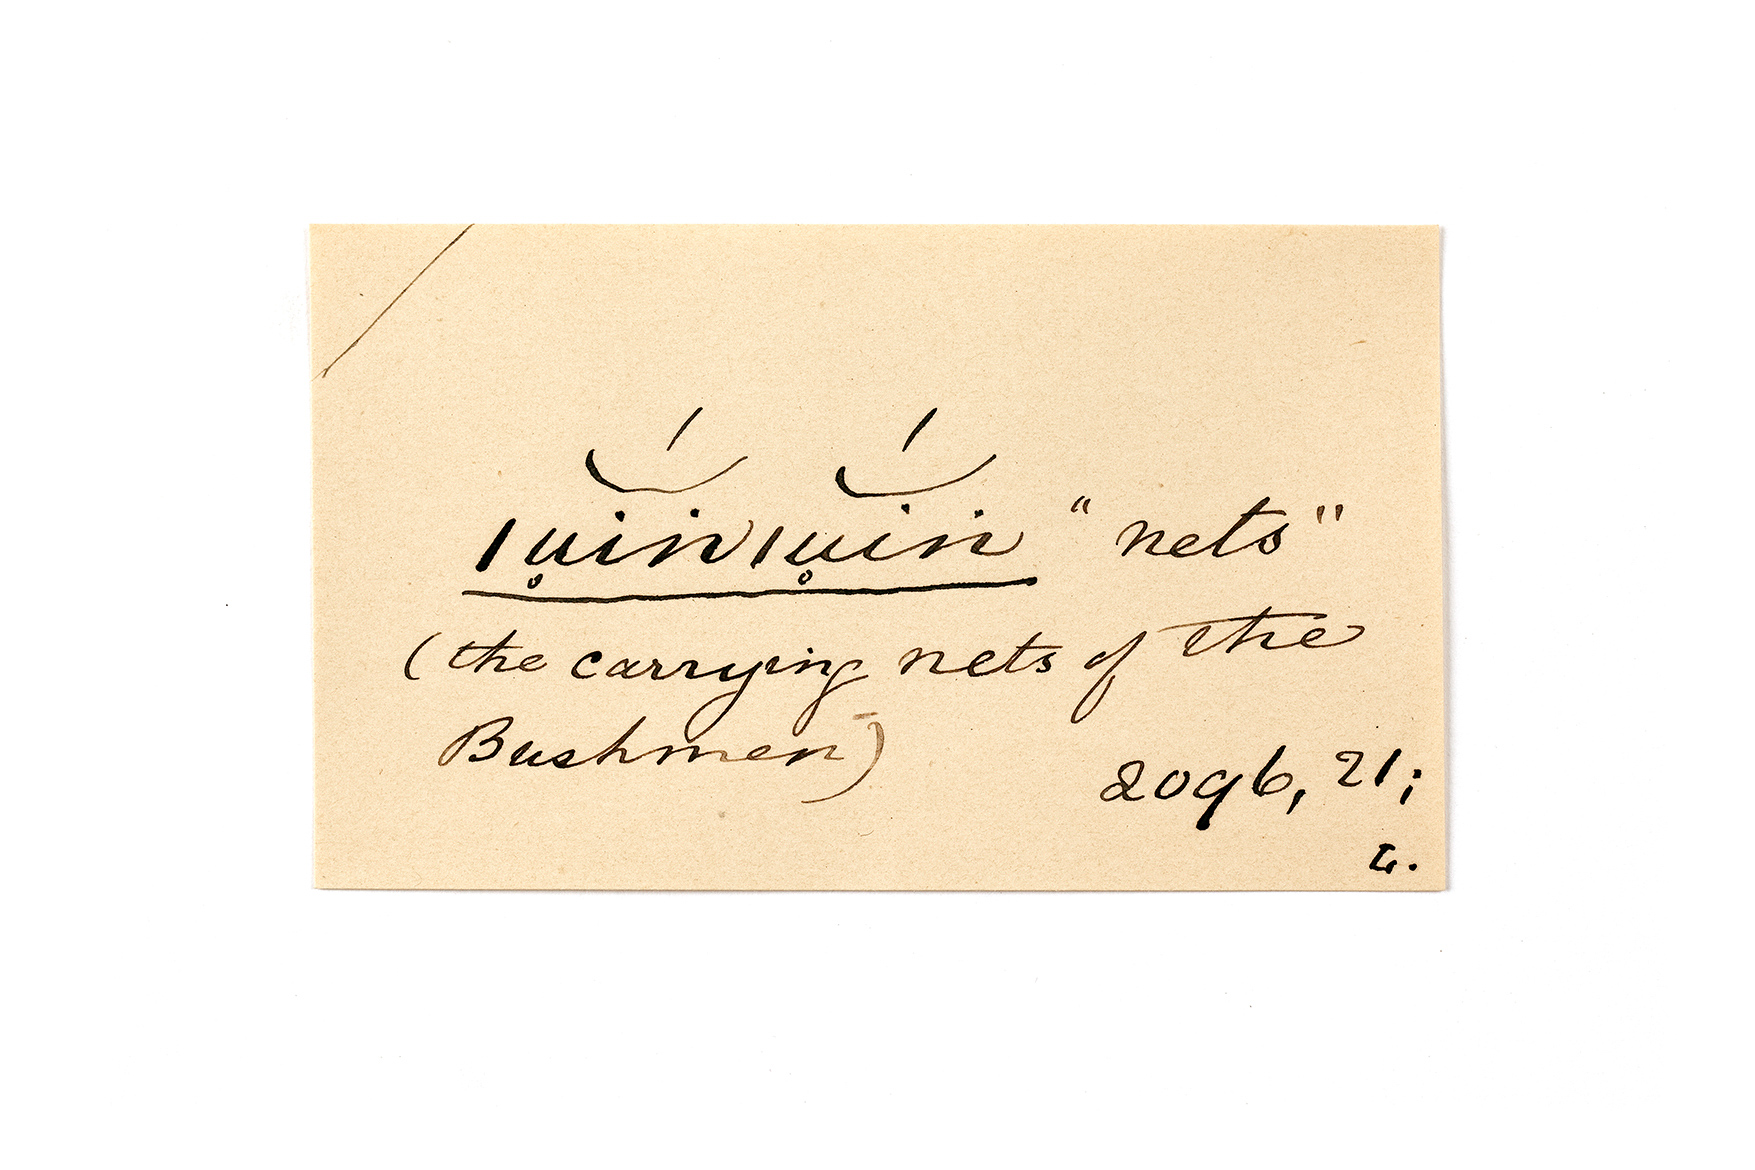 ǀu̥ĭ́nǀu̥ĭ́n "nets"
(the carrying nets of the
Bushmen)
2096, 21;
L.